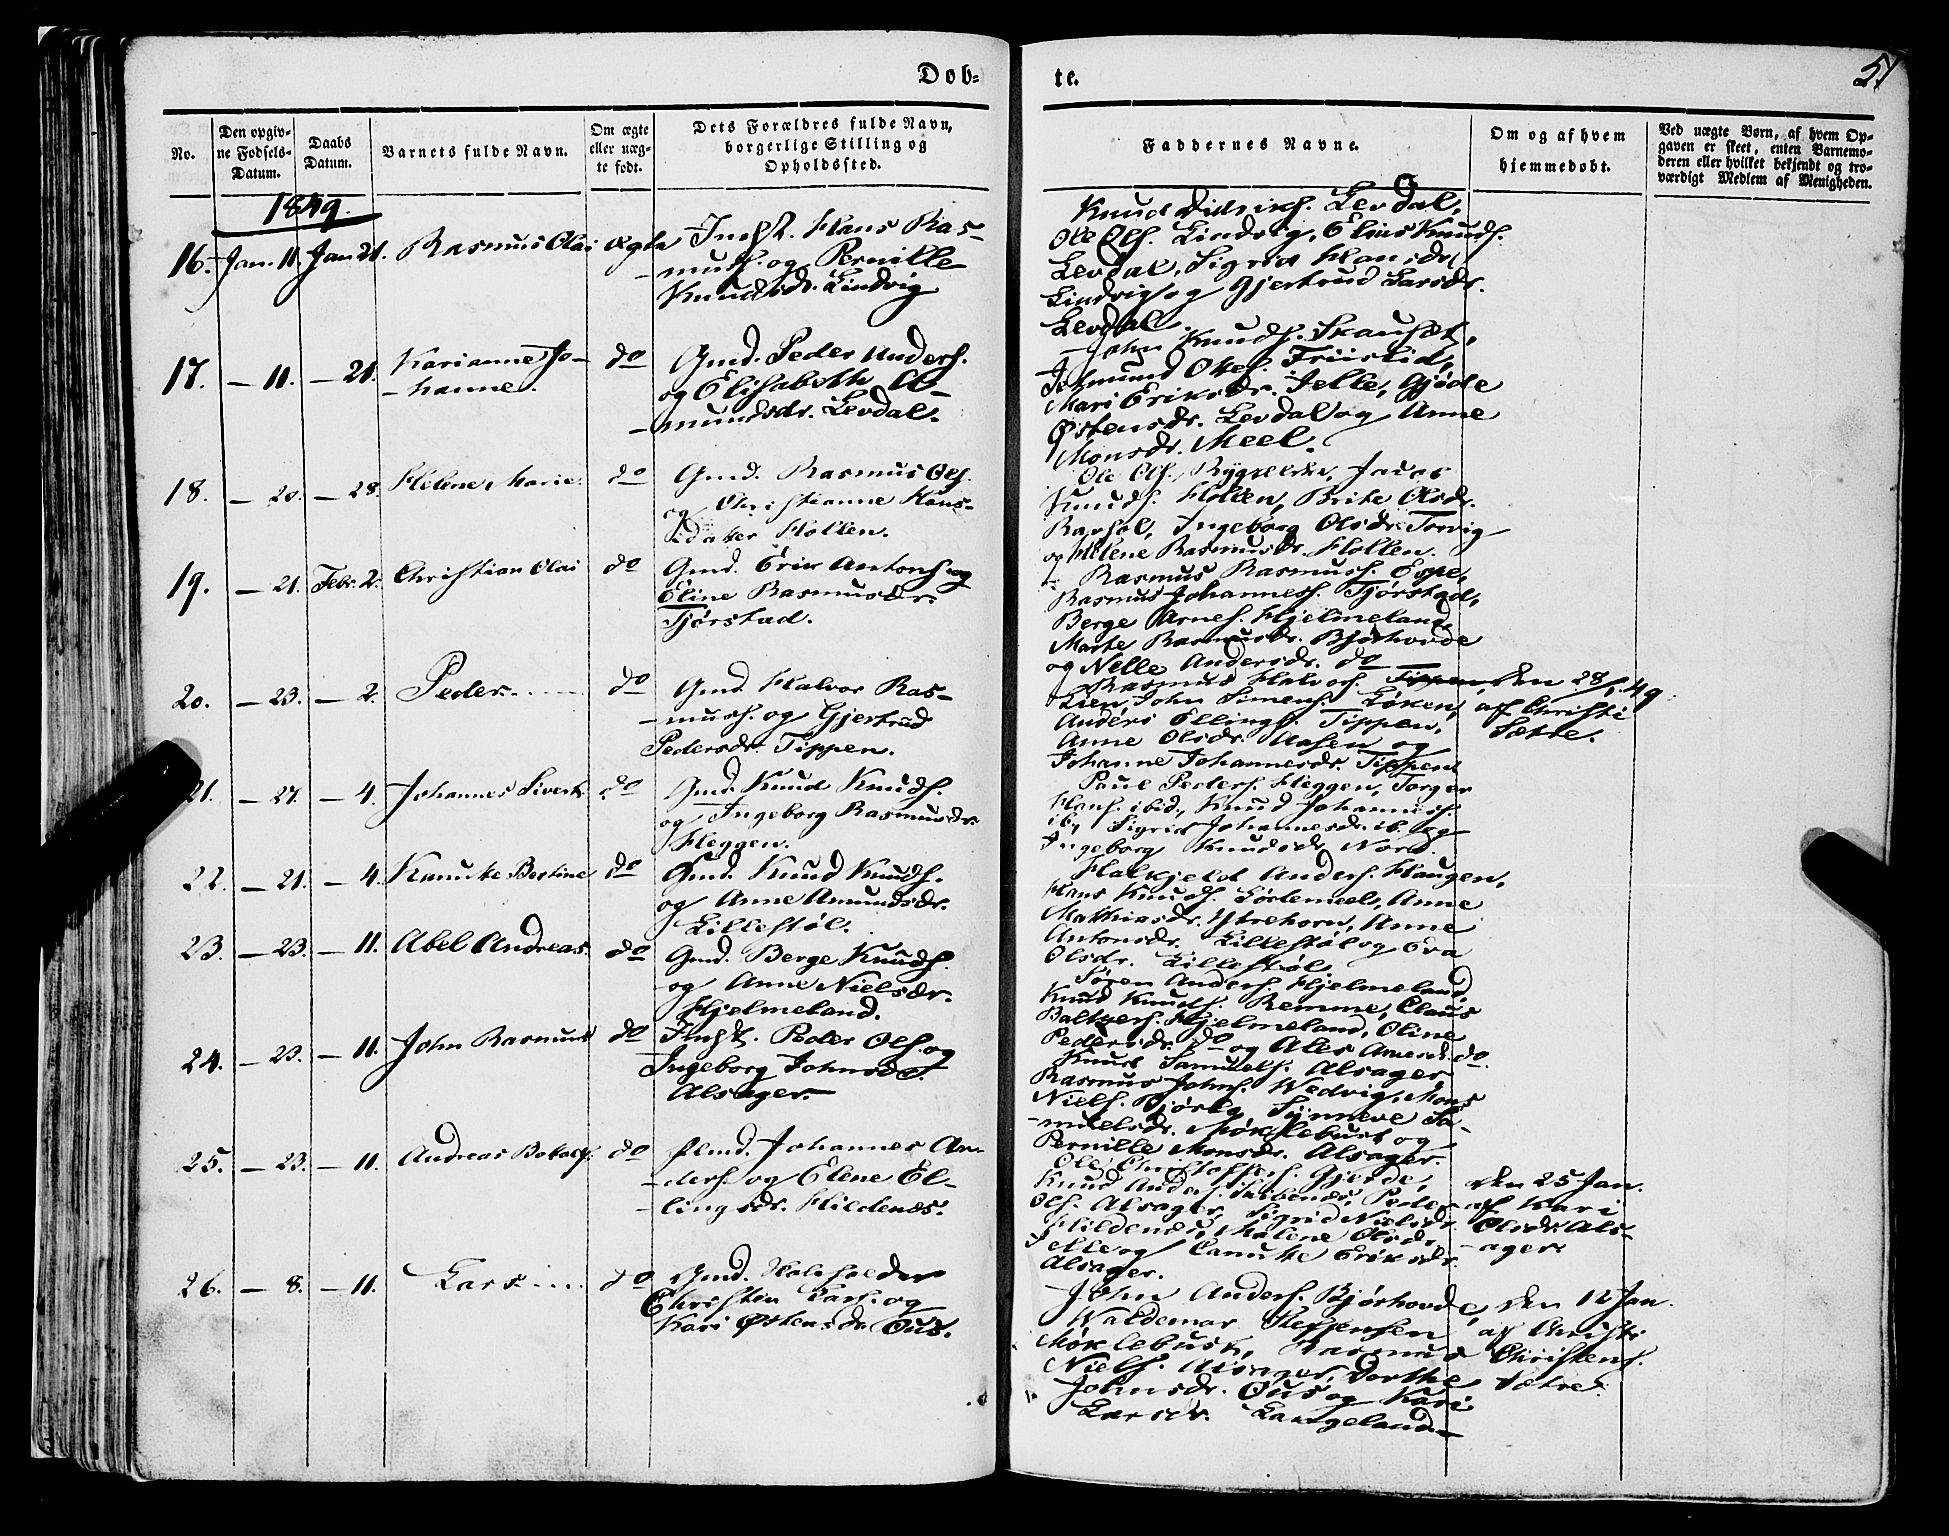 Døb-
te.
51
No.
Den opgiv-
ne Fødsels-
Datum.
Daabs
Datum.
Barnets fulde Navn.
Om ægte
eller uæg-
te født.
Dets Forældres fulde Navn,
borgerlige Stilling og
Opholdssted.
Faddernes Navne.
Om og af hvem
hjemmedøbt.
Ved uægte Børn, af hvem Op-
gaven er skeet, enten Barnemo-
deren eller hvilket bekjendt og tro-
værdigt Medlem af Menigheden.
1849.
16. Jan. 11. Jan 21. Rasmus Olai ægte
Indst. Hans Ras-
mus. og Pernille
Knudsdr. Lindvig
Knud Didriks. Levdal,
Ole Ols. Lindvig, Elias Knuds.
Levdal, Sigrid Hansdr.
Lindvig og Gjertrud Larsdr.
Levdal.
17. – 11. – 21. Karianne Jo-
hanne. do
Gmd. Peder Anders.
og Elisabeth
mundsdr. Levdal.
John Knuds. Skausæt,
Mari Eriksdr. Jelle, Gjøde
Østensdr. Levdal og Anne
Monsdr. Meel.
18. – 20. – 28. Helene Marie do
Gmd. Rasmus Ols.
og Christianne Hans-
dater Hollen.
Ole Ols.
Knuds. Hollen, Brite Olsdr.
Ingeborg Olsdr. Torvig
og Helene Rasmusdr. Hollen.
19. – 21. Febr. 2. Christian Olai do
Gmd. Erik Antons. og
Eline Rasmusdr.
Tjørstad.
Rasmus Rasmuss. Espe,
Rasmus Johannes. Tjørstad,
Berge Arnes. Hjelmeland,
Marte Rasmusdr. Bjørhovde
og Nelle Andersdr. do
20. – 23. – 2. Peder. do
Gmd. Halvor Ras-
muss. og Gjertrud
Pedersdr. Tippen.
Rasmus Halvors. Tippen,
Lien, John Simens. Løken,
Anders Ellings. Tippen,
Anne Olsdr. Aasen og
Johanne Johannesdr. Tippen
den 28/1 49
af Christi
Sætre.
21. – 27. – 4. Johannes Sivert do
Gmd. Knud Knuds.
og Ingeborg Rasmusdr.
Heggen.
Paul Peders. Heggen, Torger
Hans. ibid, Knud Johannes.
ib, Sigrid Johannesdr. ib. og
Ingeborg Knudsdr. Nord
22. – 21. – 4. Kanutte Bertine do
Gmd. Knud Knuds.
og Anne Amundsdr.
Lillestøl.
Halkjeld Anders. Haugen,
Hans Knuds. Løstemeel, Anne
Matthiasdr. Ytrehorn, Anne
Antonsdr. Lillestøl og Eva
Olsdr. Lillestøl.
23. – 23. – 11. Abel Andreas. do
Gmd. Berge Knuds.
og Anne Nielsdr.
Hjelmeland.
Søren Anders. Hjelmeland,
Knud Knuds. Remme, Claus
Baltzers. Hjelmeland, Oline
Pedersdr. do og Ales Arnesd. do.
24. – 23. – 11. John Rasmus do
Indst. Peder Ols. og
Ingeborg Johnsdr.
Alsager.
Knud Samuels. Alsager
Rasmus Johns. Wedvig, Mons
Niels. Synneve Sa-
muelsdr. Møklebust og
Pernille Monsdr. Alsager.
25. – 23. – 11. Andreas Botolf. do
Johannes An-
ders. og Elene El-
lingsdr. Hildenes.
Ole Christoffers. Gjerde,
Knud Anders. Peder
Ols. Alsager, Sigrid Nielsdr.
Hildenes, Malene Olsdr.
Jelle og Canutte Eriksdr.
Alsager.
den 25 Jan.
af Kari
Olsdr. Als-
ager.
26. – 8. – 11. Lars. do
Gmd.
Christen Lars. og
Kari Østensdr. Ous.
John Anders. Bjørhovde,
Waldemar Steffensen
Møklebust, Rasmus
Niels. Alsager, Dorthe
Johnsdr. Ous og Kari
Larsdr. Langeland.
den 12 Jan.
af Christi
Christens.
Sætre.